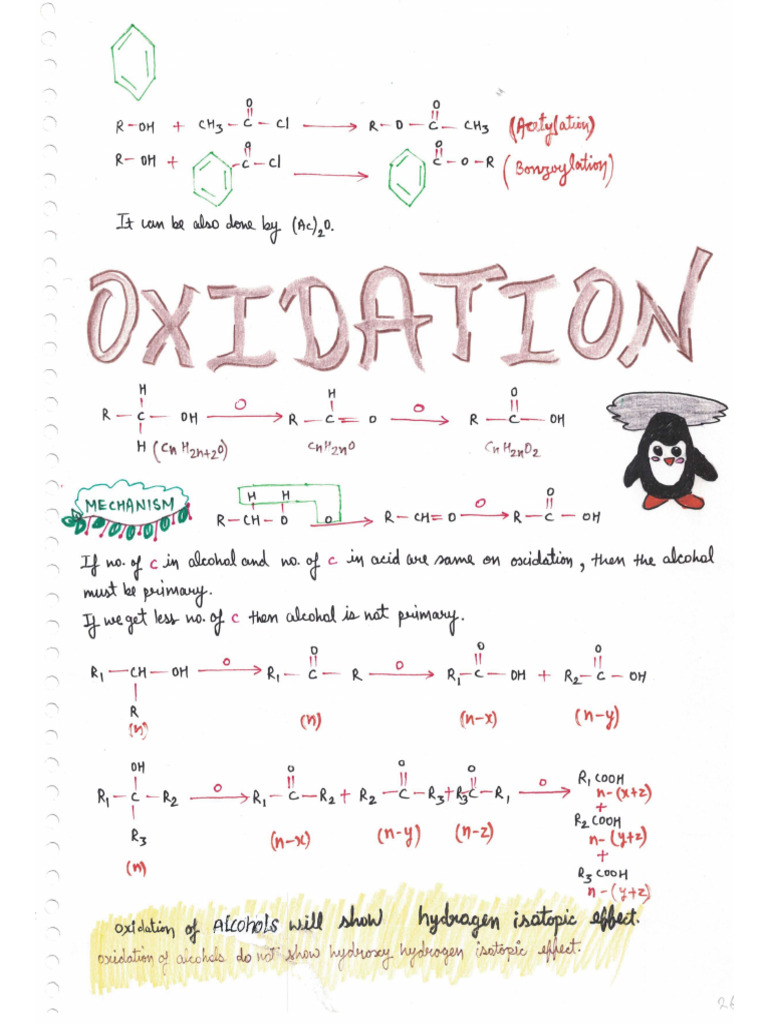 R-OH + CH3-C(=O)-Cl → R-O-C(=O)-CH3 (Acetylation)
R-OH + C(=O)-Cl → C(=O)-O-R (Bonzoylation)
It can be also done by (Ac)2O.
OXIDATION
R-C(H)(H)-OH —O→ R-C(H)=O —O→ R-C(=O)-OH
(CnH2n+2O) CnH2nO CnH2nO2
MECHANISM R-CH(H)-O(H) O → R-CH=O —O→ R-C(=O)-OH
If no. of c in alcohol and no. of c in acid are same on oxidation, then the alcohol
must be primary.
If we get less no. of c then alcohol is not primary.
R1-CH(R)-OH —O→ R1-C(=O)-R —O→ R1-C(=O)-OH + R2-C(=O)-OH
(n) (n) (n-x) (n-y)
R1-C(OH)(R3)-R2 —O→ R1-C(=O)-R2 + R2-C(=O)-R3 + R3-C(=O)-R1 —O→ R1COOH
(n) (n-x) (n-y) (n-z) n-(x+z)
+
R2COOH
n-(y+z)
+
R3COOH
n-(y+z)
oxidation of Alcohols will show hydragen isatopic effect.
oxidation of alcohols do not show hydroxy hydrogen isotopic effect.